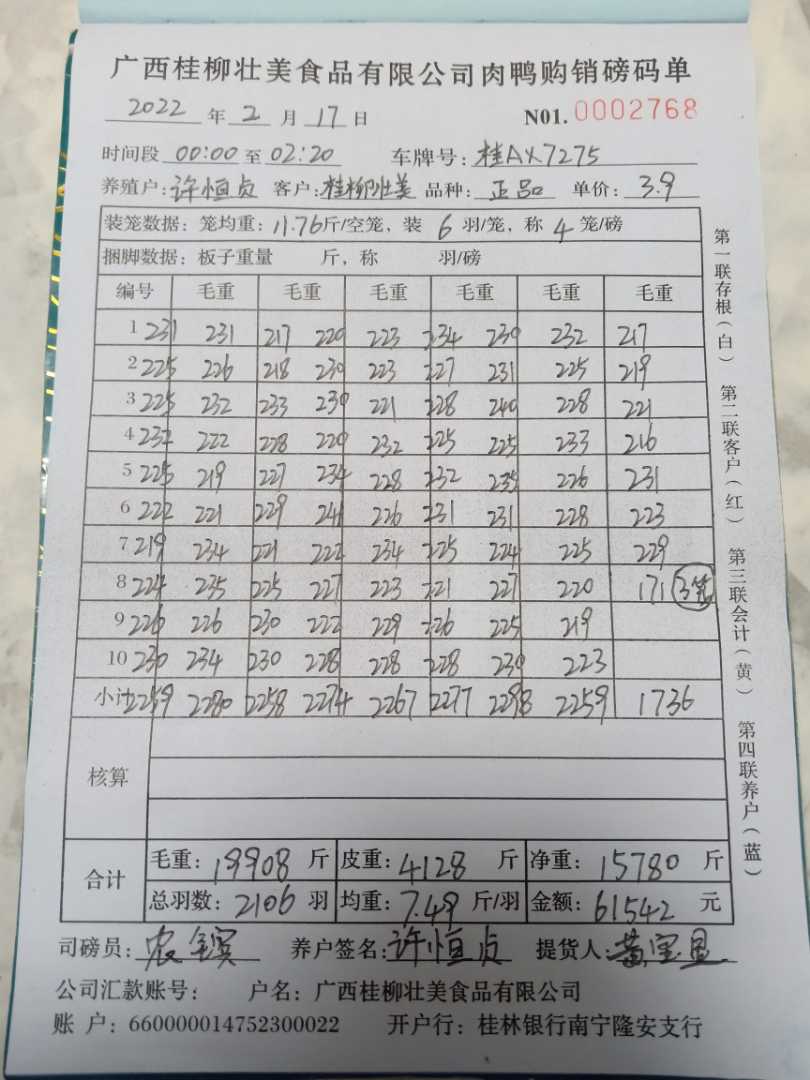 广西桂柳壮美食品有限公司肉鸭购销磅码单
2022 年 2 月 17 日 N01. 0002768
时间段 00:00 至 02:20 车牌号: 桂AX7275
养殖户: 许恒贞 客户: 桂柳壮美 品种: 正品 单价: 3.9
装笼数据: 笼均重: 11.76 斤/空笼, 装 6 羽/笼, 称 4 笼/磅
捆脚数据: 板子重量 斤, 称 羽/磅
编号 毛重 毛重 毛重 毛重 毛重 毛重
1 231 231 217 220 223 234 230 232 217
2 225 226 218 230 223 227 231 225 219
3 225 232 233 230 221 228 240 228 221
4 232 222 228 220 232 225 225 233 216
5 225 219 227 234 228 232 235 226 231
6 222 221 229 241 226 231 231 228 223
7 219 234 221 222 234 225 224 225 229
8 224 235 225 227 223 221 227 220 171 3笼
9 226 226 230 222 229 226 225 219
10 230 234 230 228 228 228 230 223
小计 2259 2280 2258 2274 2267 2277 2298 2259 1736
核算
合计 毛重: 19908 斤 皮重: 4128 斤 净重: 15780 斤
总羽数: 2106 羽 均重: 7.49 斤/羽 金额: 61542 元
司磅员: 农 养户签名: 许恒贞 提货人: 黄宝
公司汇款账号: 户名: 广西桂柳壮美食品有限公司
账 户: 660000014752300022 开户行: 桂林银行南宁隆安支行
第一联存根(白) 第二联客户(红) 第三联会计(黄) 第四联养户(蓝)